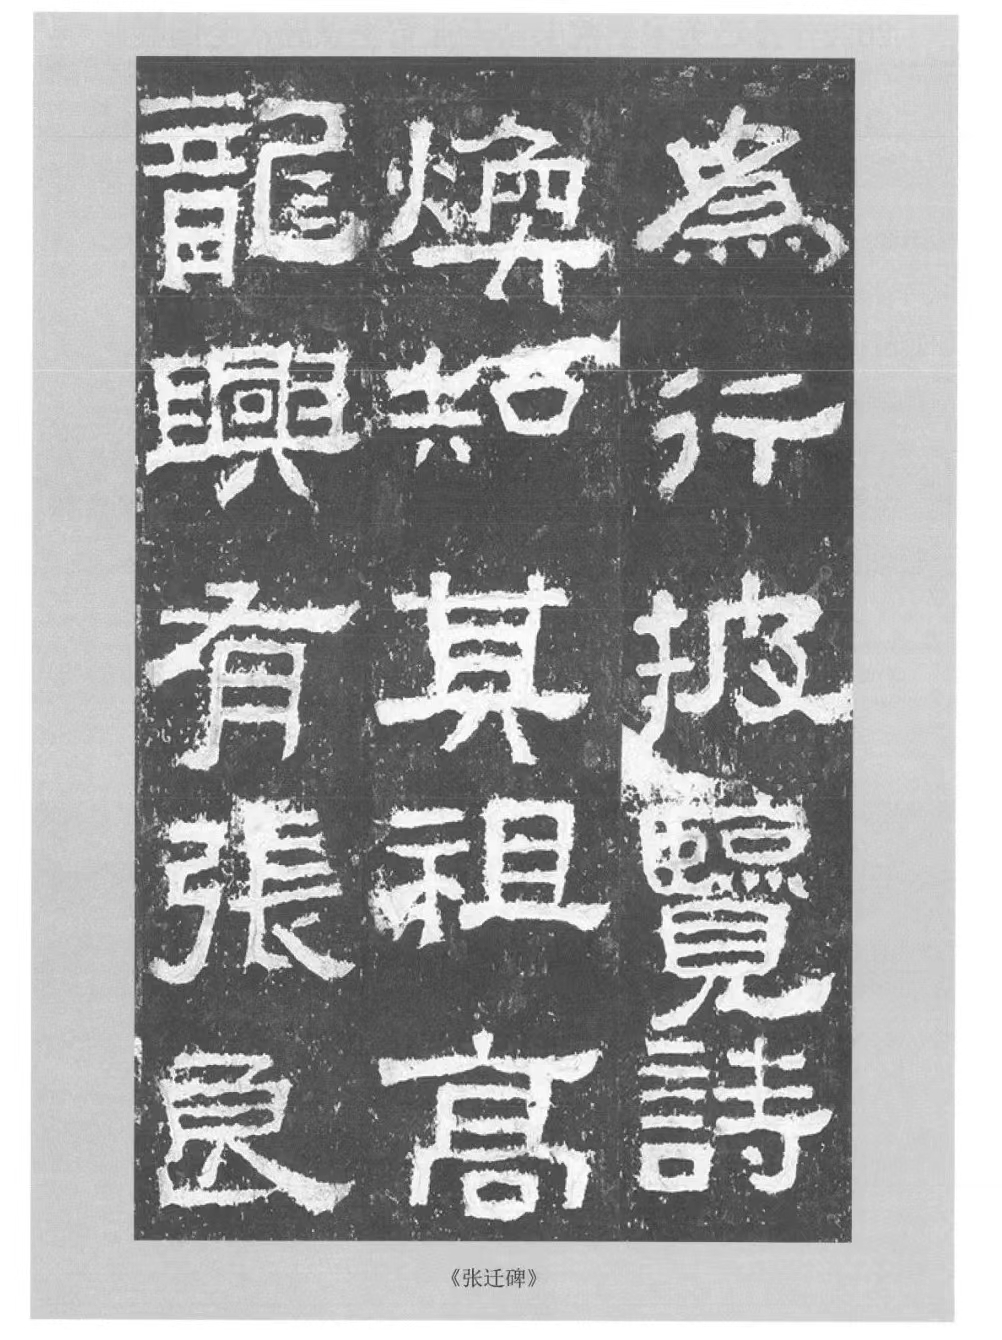 為行披覽詩
煥知其祖高
龍興有張良
《张迁碑》